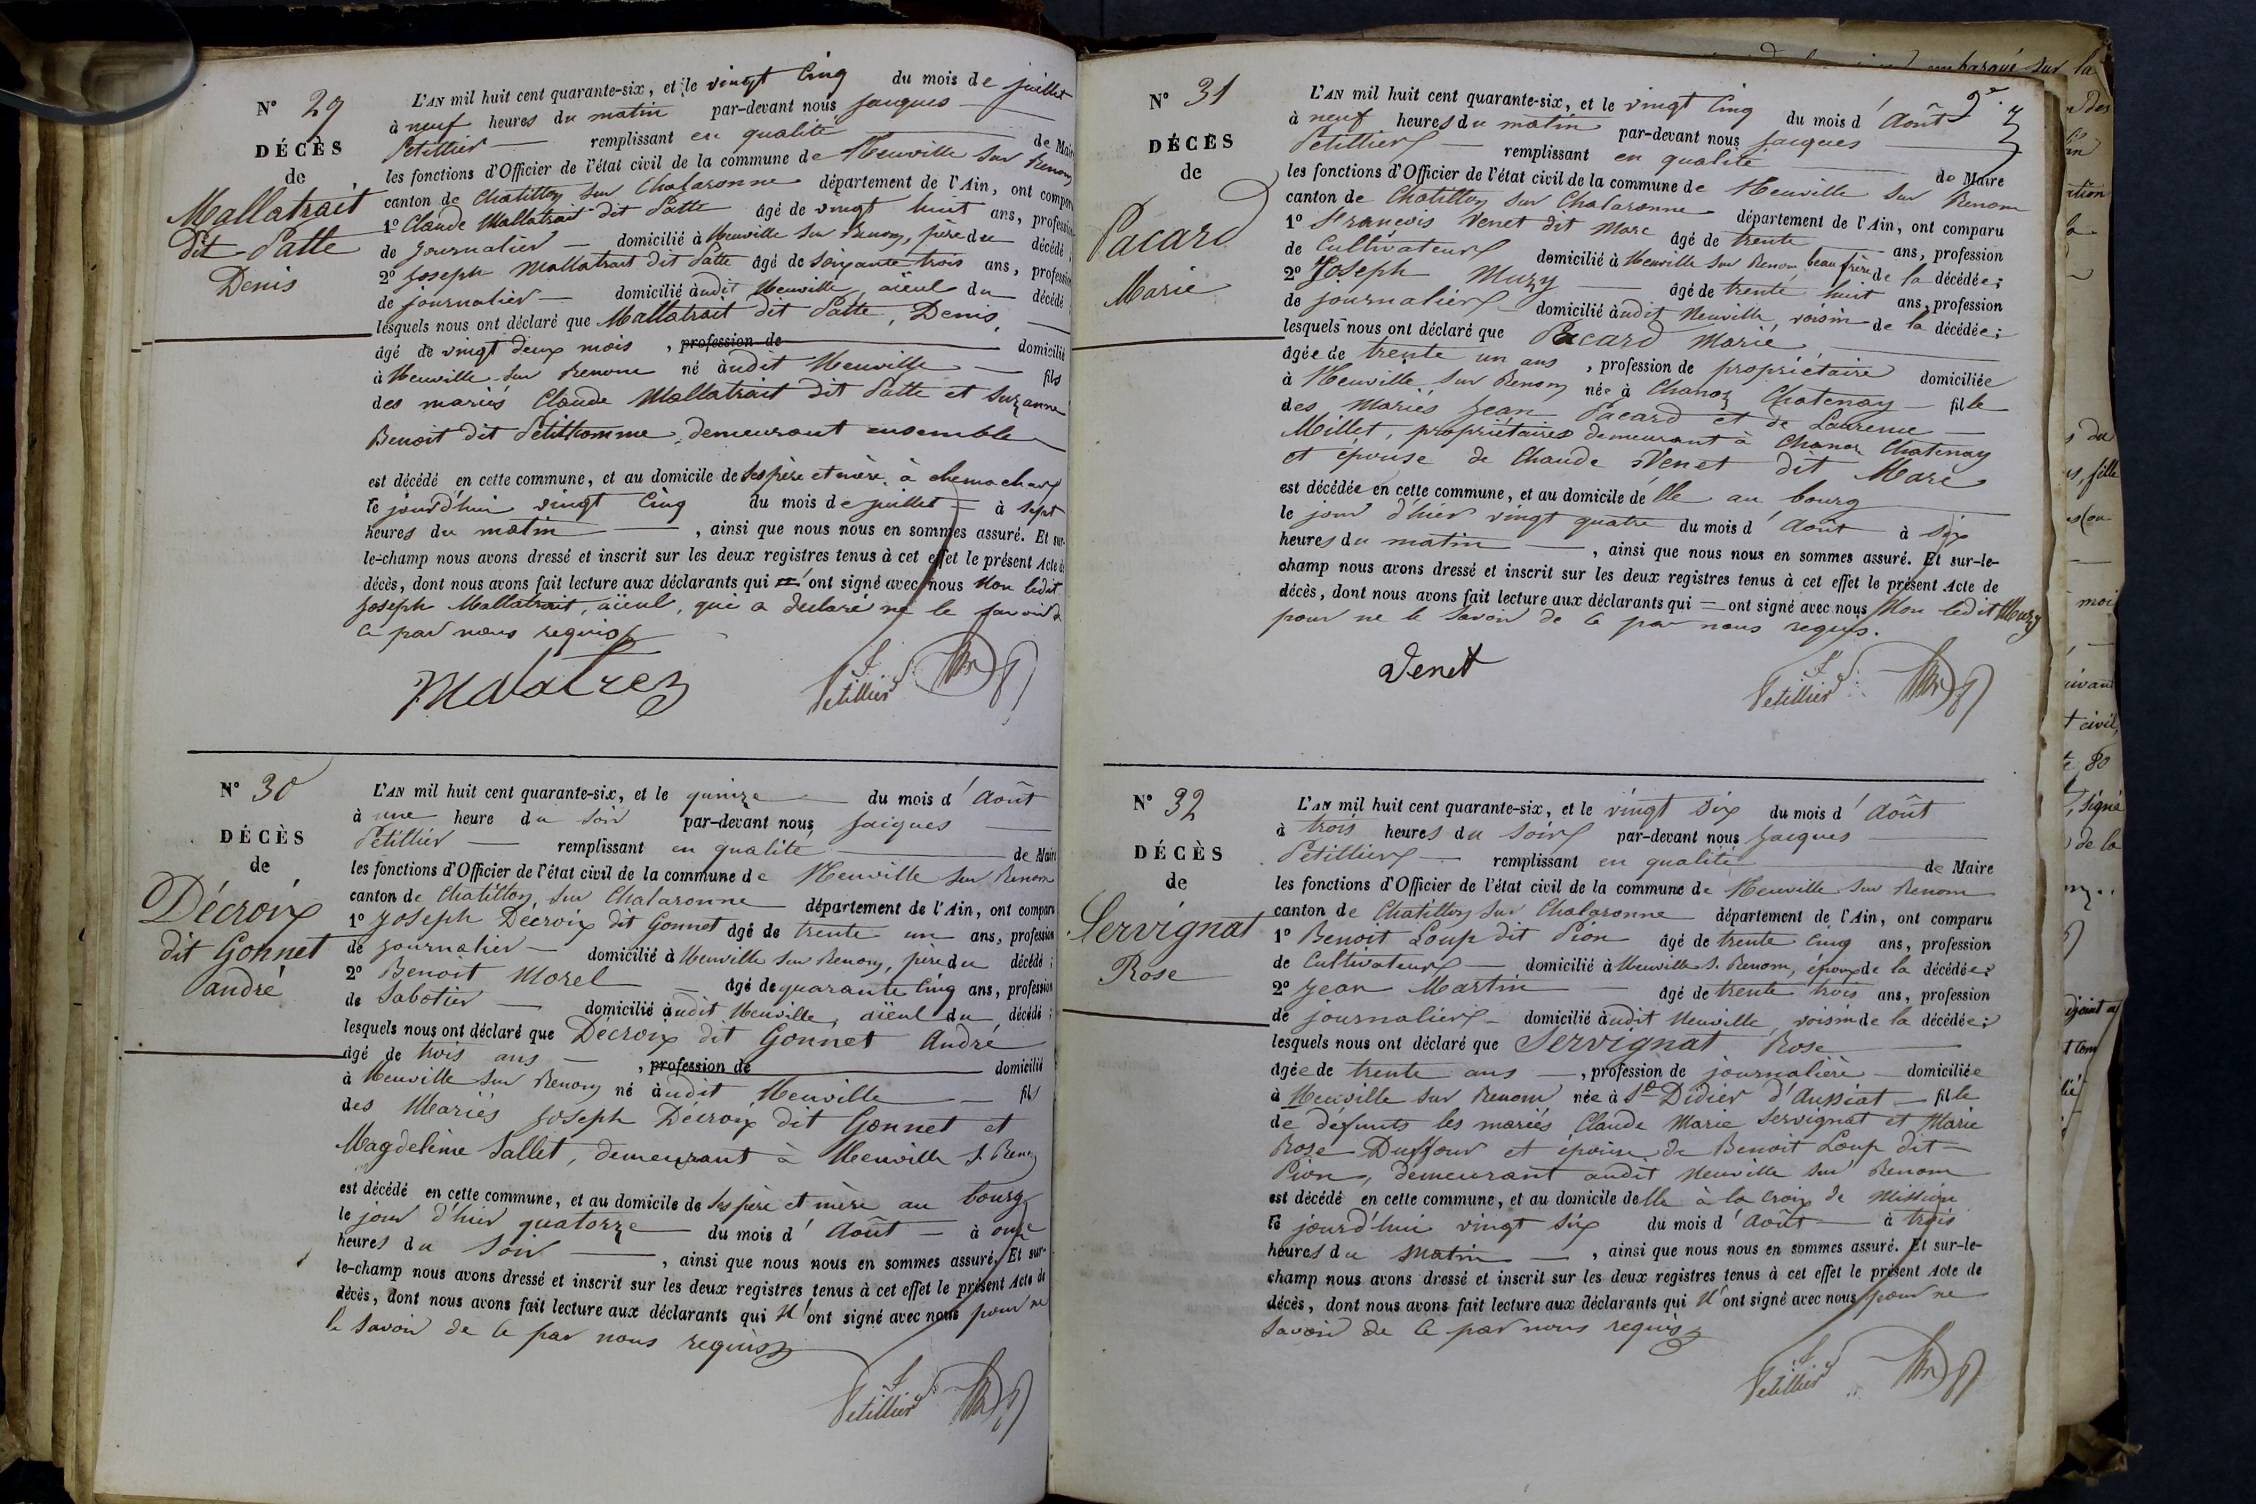 N° 29
DÉCÈS
de
Mallatrait
dit Patte
Denis
L'AN mil huit cent quarante-six, et le vingt Cinq du mois de juillet
à neuf heures du matin par-devant nous Jacques
Petillier remplissant en qualité de Maire
les fonctions d'Officier de l'état civil de la commune de Neuville sur Renom
canton de Chatillon sur Chalaronne département de l'Ain, ont comparu
1° Claude Mallatrait dit Patte âgé de vingt huit ans, profession
de journalier domicilié à Neuville sur Renom, père du décédé;
2° Joseph Mallatrait dit Patte âgé de soixante trois ans, profession
de journalier domicilié audit Neuville, aïeul du décédé
lesquels nous ont déclaré que Mallatrait dit Patte, Denis,
âgé de vingt deux mois, profession de domicilié
à Neuville sur Renom né audit Neuville fils
des mariés Claude Mallatrait dit Patte et Suzanne
Benoit dit Petithomme, demeurant ensemble
est décédé en cette commune, et au domicile de ses père et mère, à
le jourd'hui vingt Cinq du mois de juillet à sept
heures du matin, ainsi que nous nous en sommes assuré. Et sur-
le-champ nous avons dressé et inscrit sur les deux registres tenus à cet effet le présent Acte de
décès, dont nous avons fait lecture aux déclarants qui ont signé avec nous Non ledit
Joseph Mallatrait, aïeul, qui a déclaré ne le savoir de
ce par nous requis
Malatrez
Petillier
N° 30
DÉCÈS
de
Décroix
dit Gonnet
André
L'AN mil huit cent quarante-six, et le quinze du mois d'Août
à une heure du soir par-devant nous Jacques
Petillier remplissant en qualité de Maire
les fonctions d'Officier de l'état civil de la commune de Neuville sur Renom
canton de Chatillon sur Chalaronne département de l'Ain, ont comparu
1° Joseph Décroix dit Gonnet âgé de trente un ans, profession
de journalier domicilié à Neuville sur Renom, père du décédé;
2° Benoit Morel âgé de quarante Cinq ans, profession
de Sabotier domicilié audit Neuville, aïeul du décédé;
lesquels nous ont déclaré que Décroix dit Gonnet André
âgé de trois ans, profession de domicilié
à Neuville sur Renom né audit Neuville fils
des Mariés Joseph Décroix dit Gonnet et
Magdeleine Sallet, demeurant à Neuville s. Renom
est décédé en cette commune, et au domicile de ses père et mère au bourg
le jour d'hier quatorze du mois d'Août à onze
heures du Soir, ainsi que nous nous en sommes assuré. Et sur-
le-champ nous avons dressé et inscrit sur les deux registres tenus à cet effet le présent Acte de
décès, dont nous avons fait lecture aux déclarants qui N'ont signé avec nous pour ne
le savoir de ce par nous requis
Petillier
N° 31
DÉCÈS
de
Pacard
Marie
L'AN mil huit cent quarante-six, et le vingt Cinq du mois d'Août
à neuf heures du matin par-devant nous Jacques
Petillier remplissant en qualité de Maire
les fonctions d'Officier de l'état civil de la commune de Neuville sur Renom
canton de Chatillon sur Chalaronne département de l'Ain, ont comparu
1° François Venet dit Marc âgé de trente ans, profession
de Cultivateur domicilié à Neuville sur Renom, beau frère de la décédée;
2° Joseph Muzy âgé de trente huit ans, profession
de journalier domicilié audit Neuville, voisin de la décédée;
lesquels nous ont déclaré que Pacard Marie
âgée de trente un ans, profession de propriétaire domiciliée
à Neuville sur Renom née à Chanoz Chatenay fille
des Mariés Jean Pacard et de Laurence
Millet, propriétaires demeurant à Chanoz Chatenay
et épouse de Claude Venet dit Marc
est décédée en cette commune, et au domicile d'elle au bourg
le jour d'hier vingt quatre du mois d'Août à six
heures du matin, ainsi que nous nous en sommes assuré. Et sur-le-
champ nous avons dressé et inscrit sur les deux registres tenus à cet effet le présent Acte de
décès, dont nous avons fait lecture aux déclarants qui ont signé avec nous Non ledit Muzy
pour ne le savoir de ce par nous requis.
Venet
Petillier
N° 32
DÉCÈS
de
Servignat
Rose
L'AN mil huit cent quarante-six, et le vingt Six du mois d'Août
à trois heures du soir par-devant nous Jacques
Petillier remplissant en qualité de Maire
les fonctions d'Officier de l'état civil de la commune de Neuville sur Renom
canton de Chatillon sur Chalaronne département de l'Ain, ont comparu
1° Benoit Loup dit Pion âgé de trente Cinq ans, profession
de Cultivateur domicilié à Neuville s. Renom, époux de la décédée;
2° Jean Martin âgé de trente trois ans, profession
de journalier domicilié audit Neuville, voisin de la décédée;
lesquels nous ont déclaré que Servignat Rose
âgée de trente ans, profession de journalière domiciliée
à Neuville sur Renom née à St Didier d'Aussiat fille
de défunts les mariés Claude Marie Servignat et Marie
Rose Duffour et épouse de Benoit Loup dit
Pion, demeurant audit Neuville sur Renom
est décédé en cette commune, et au domicile d'elle à la Croix de Mission
le jourd'hui vingt six du mois d'Août à trois
heures du matin, ainsi que nous nous en sommes assuré. Et sur-le-
champ nous avons dressé et inscrit sur les deux registres tenus à cet effet le présent Acte de
décès, dont nous avons fait lecture aux déclarants qui N'ont signé avec nous pour ne
savoir de ce par nous requis
Petillier